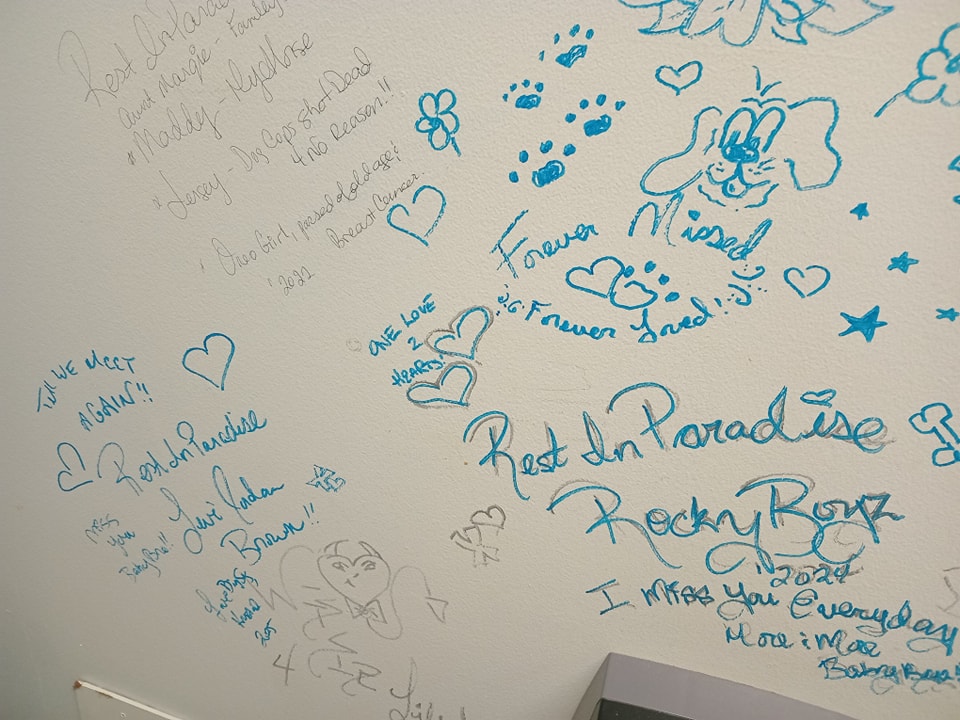 Rest In Paradise
Aunt Margie - Family
* Maddy - NycHose
* Jersey - Dog Cops Shot Dead
4 No Reason!!
Oreo Girl, passed of old age &
2022 Breast Cancer.
Forever Missed
& Forever Loved!
ONE LOVE
2
HEARTS!
Till WE MEET
AGAIN!!
Rest In Paradise
Miss
You
Levi Jordan
Brown!!
Rest In Paradise
Rocky Boyz
2024
I Miss You Everyday
More & More
Baby Boy
4